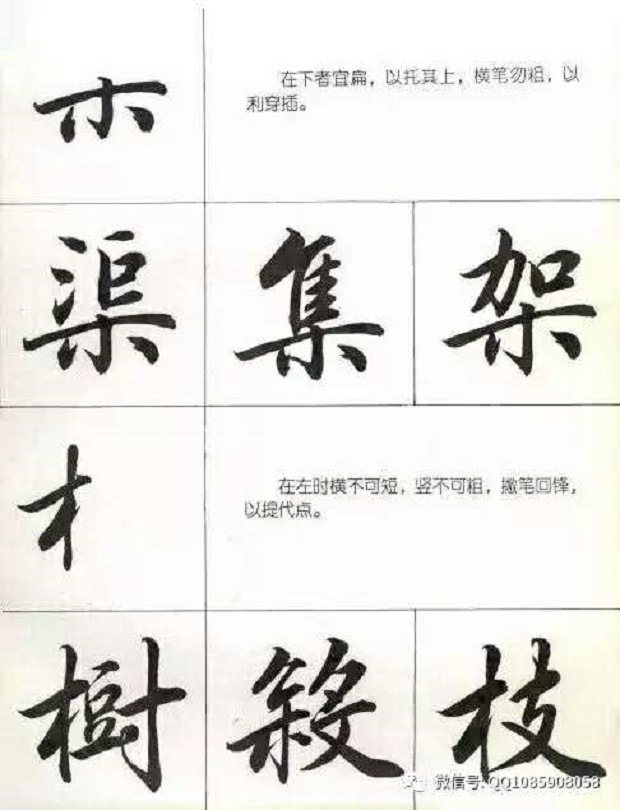 木
在下者宜扁，以托其上，横笔勿粗，以
利穿插。
渠 集 架
木
在左时横不可短，竖不可粗，撇笔回锋，
以提代点。
樹 殺 枝
微信号: QQ1085908058